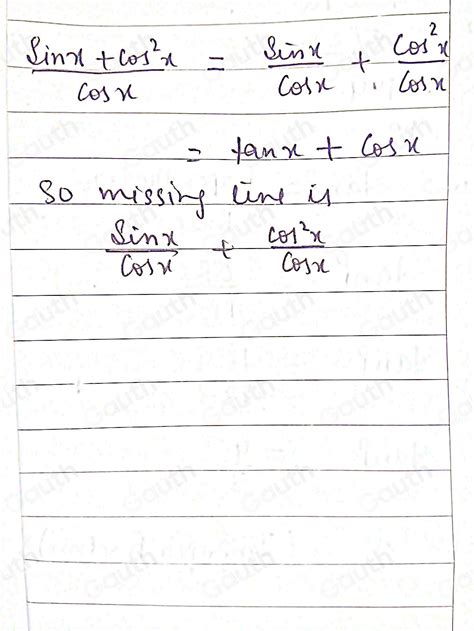 Sinx + cos²x / cosx = Sinx / Cosx + Cos²x / Cosx
= tanx + Cosx
So missing line is
Sinx / Cosx + cos²x / Cosx
Gauth